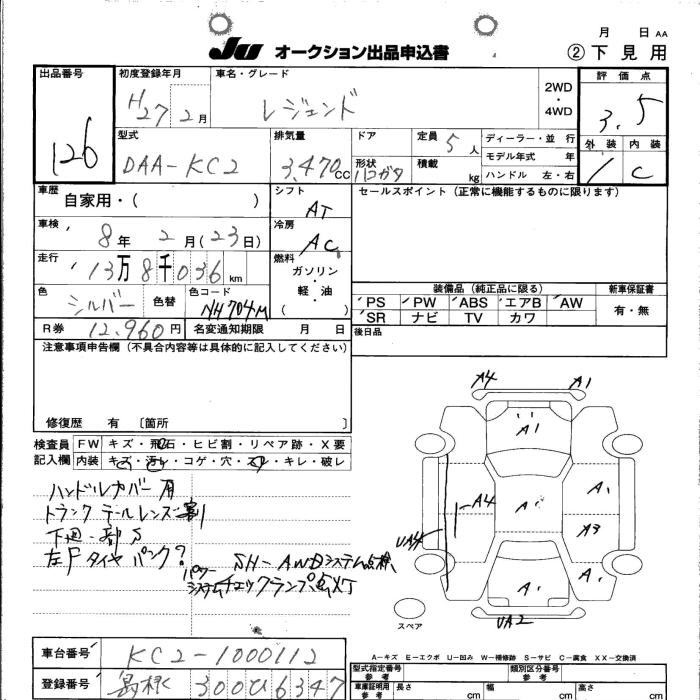 月 日 AA
JU オークション出品申込書 ②下見用
出品番号 初度登録年月 車名・グレード 評価点
126 H27 2月 レジェンド 2WD・4WD 3.5
型式 排気量 ドア 定員 5人 ディーラー・並行 外装 内装
DAA-KC2 3,470cc 形状 ハコガタ 積載 kg モデル年式 年 1 C
ハンドル 左・右
車歴 自家用・( ) シフト AT セールスポイント(正常に機能するものに限ります)
車検 8年 2月(23日) 冷房 AC
走行 13万8千036km 燃料 ガソリン・軽・油 ( )
色 シルバー 色替 色コード NH704M
装備品(純正品に限る) 新車保証書
PS PW ABS エアB AW 有・無
SR ナビ TV カワ
R券 12,960円 名変通知期限 月 日 後日品
注意事項申告欄(不具合内容等は具体的に記入してください)
修復歴 有 〔箇所 〕
検査員記入欄 FW キズ・飛石・ヒビ割・リペア跡・X要
内装 キズ・汚レ・コゲ・穴・スレ・キレ・破レ
ハンドルカバー用
トランク テールレンズ割
下廻一部S
左Fタイヤパンク?
SH-AWDシステム点検、
パワーシステムチェックランプ点灯
A4 A1
A1
A4 A
UA4 A3
A
UA2
スペア
A-キズ E-エクボ U-凹み W-補修跡 S-サビ C-腐食 XX-交換済
車台番号 KC2-1000112
型式指定番号 参考 類別区分番号 参考
登録番号 島根 300ひ6347
車庫証明用 参考 長さ cm 幅 cm 高さ cm